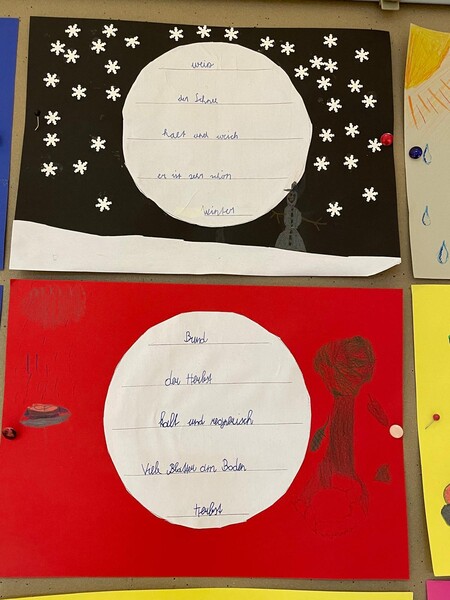 weis
der Schnee
kalt und weich
er ist sehr schön
Winter
Bund
der Herbst
kalt und regnerisch
Viele Blätter am Boden
Herbst